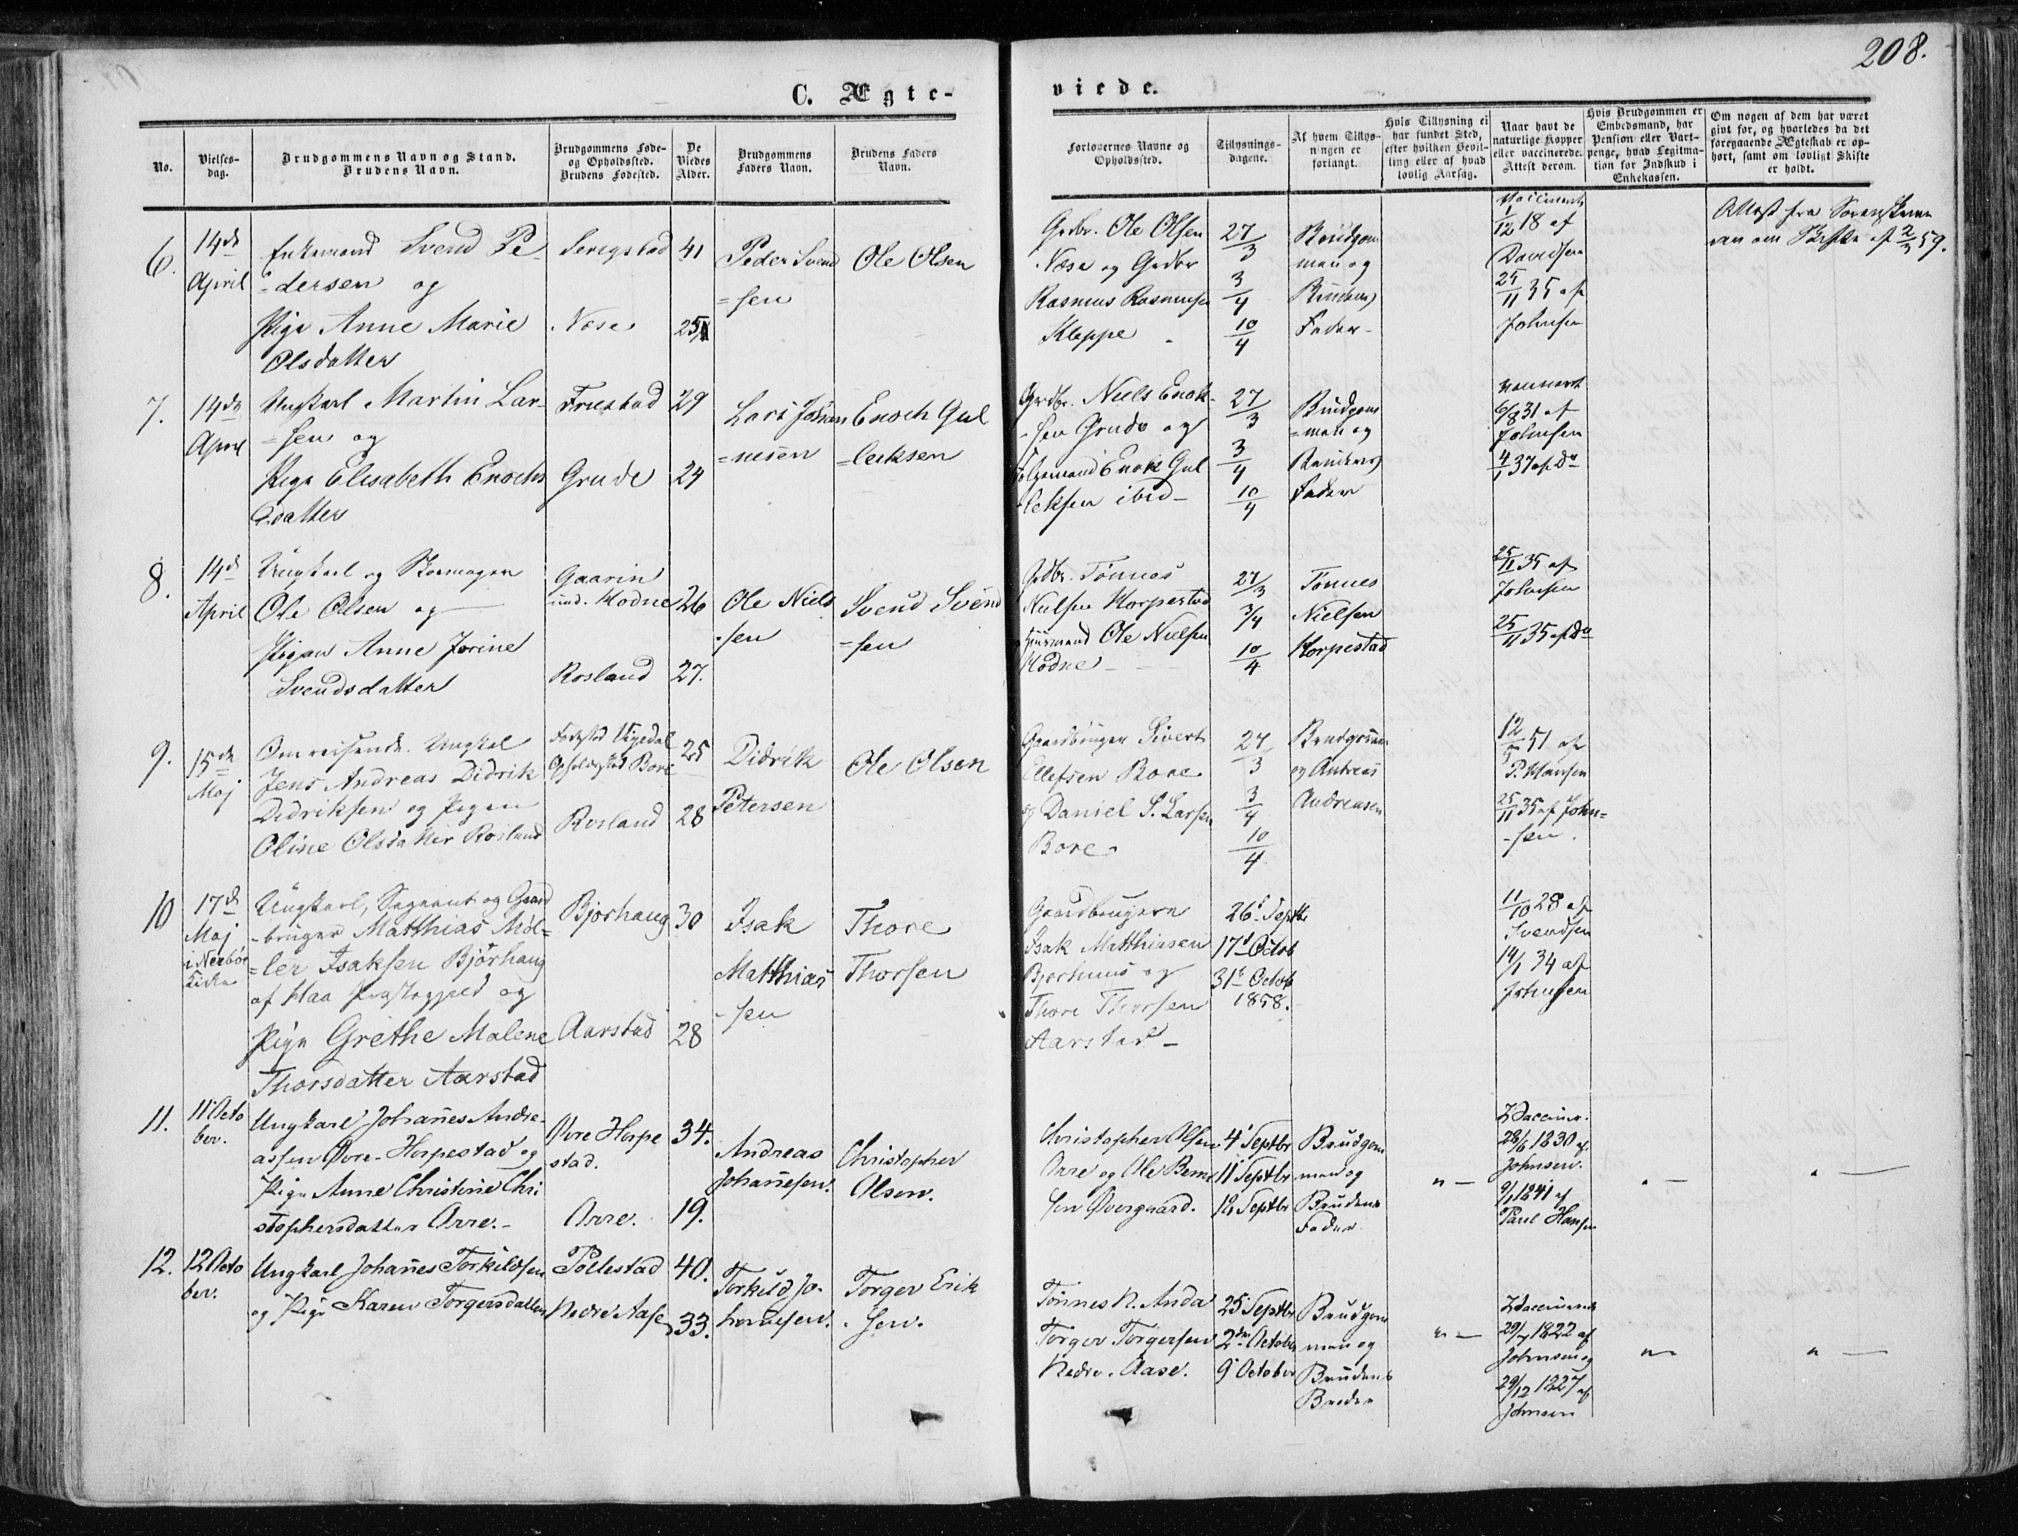 208.
C. Ægte-
viede.
No.
Vielses-
dag.
Brudgommens Navn og Stand.
Brudens Navn.
Brudgommens Føde-
og Opholdssted.
Brudens Fødested.
De
Viedes
Alder.
Brudgommens
Faders Navn.
Brudens Faders
Navn.
Forlovernes Navne og
Opholdssted.
Tillysnings-
dagene.
Af hvem Tillys-
ningen er
forlangt.
Hvis Tillysning ei
har fundet Sted,
efter hvilken Bevil-
ling eller af hvad
lovlig Aarsag.
Naar havt de
naturlige Kopper
eller vaccinerede.
Attest derom.
Hvis Brudgommen er
Embedsmand, har
Pension eller Vart-
penge, hvad Legitima-
tion for Indskud i
Enkekassen.
Om nogen af dem har været
givt for, og hvorledes da det
foregaaende Ægteskab er op-
hørt, samt om lovligt Skifte
er holdt.
6.
14de
April
Enkemand Svend Pe-
=dersen og
Pige Anne Marie
Olsdatter
Serigstad
Næse
41
25
Peder Svend
=sen
Ole Olsen
Grdbr. Ole Olsen
Næse og Grdbr
Rasmus Rasmusen
Kleppe
27/3
3/4
10/4
Brudgom
men og
Brudens
Fader-
1/12 18 af
Davidsen
25/11 35 af
Johnsen
Attest fra Sorenskrive
ren om Skifte af 2/3 59.
7.
14de
April
Ungkarl Martin Lar-
=sen og
Pige Elisabeth Enochs
datter
Friestad
Grude
29
24
Lars Johan
=nesen
Enoch Gul
=leiksen
Grdbr. Niels Enok-
-sen Grude og
Enok Gul
-leksen ibid-
27/3
3/4
10/4
Brudgom
=men og
Brudens
Fader
6/8 31 af
Johnsen
4/1 37 af Do
8.
14de
April
Ungkarl og Skomager
Ole Olsen og
Pigen Anne Jorine
Svendsdatter
Gaarin
und. Hodne
Rosland
26
27.
Ole Niels
-sen
Svend Svend
=sen
Grdbr. Tønnes
Nielsen Horpestad
Huusmand Ole Nielsen
Hodne
27/3
3/4
10/4
Tønnes
Nielsen
Horpestad
25/11 35 af
Johnsen
25/11 35 af Do
9.
15de
Maj
Omreisende. Ungkal
Jens Andreas Didrik
Didriksen og Pigen
Oline Olsdatter Rosland
Fødested Vigedal
Opholdssted Bore
Rosland
25
28
Didrik
Petersen
Ole Olsen
Gaardbruger Sivert
Ellefsen Bore
og Daniel S. Larsen
Bore
27/3
3/4
10/4
Brudgommen
og Andreas
Andreasen
12/5 51 af
P. Hansen
25/11 35 af John=
-sen.
10
17de
Maj
i Nærbø
Kirke
Ungkarl, Sergeant og Gaard
-bruger Matthias Møl=
=ler Isaksen Bjorhaug
af Haa Præstegjeld og
Pige Grethe Malene
Thorsdatter Aarstad
Bjorhaug
Aarstad
30
28
Isak
Matthias
-sen
Thore
Thorsen
Gaardbrugerne
Isak Matthiasen
Bjorhaug og
Thore Thorsen
Aarstad-
26de Septbr
17de Octob
31te Octob
1858.
11/10 28 af
Svendsen
14/1 34 af
Johnsen
11.
11 Octo
ber.
Ungkarl Johañes Andre-
assen Øvre-Horpestad og
Pige Anne Christine Chri
stophersdatter Orre.-
Øvre Horpe
stad.
Orre.
34.
19.
Andreas
Johañesen.
Christopher
Olsen.
Christopher Olsen
Orre og Ole Bernt
sen Øvergaard.
4 Septbr
11 Septbr
18 Septbr
Brudgom
men og
Brudens
Fader
Vacciner.
28/6 1830 af
Johnsen.
9/1 1841 af
Paul Hansen
" —
" —
" —
12.
12 Octo
ber.
Ungkarl Johañes Torkildsen
og Pige Karen Torgersdatter
Pollestad
Nedre Aase
40.
33.
Torkild Jo-
hañesen.
Torger Erik
-sen.
Tønnes N. Anda
Torger Torgersen
Nedre-Aase.
25 Septbr
2den October
9 October
Brudgom
men og
Brudens
Broder
Vaccinerede
29/7 1822 af
Johnsen og
29/12 1827 af
Johnsen
" —
" —
" —